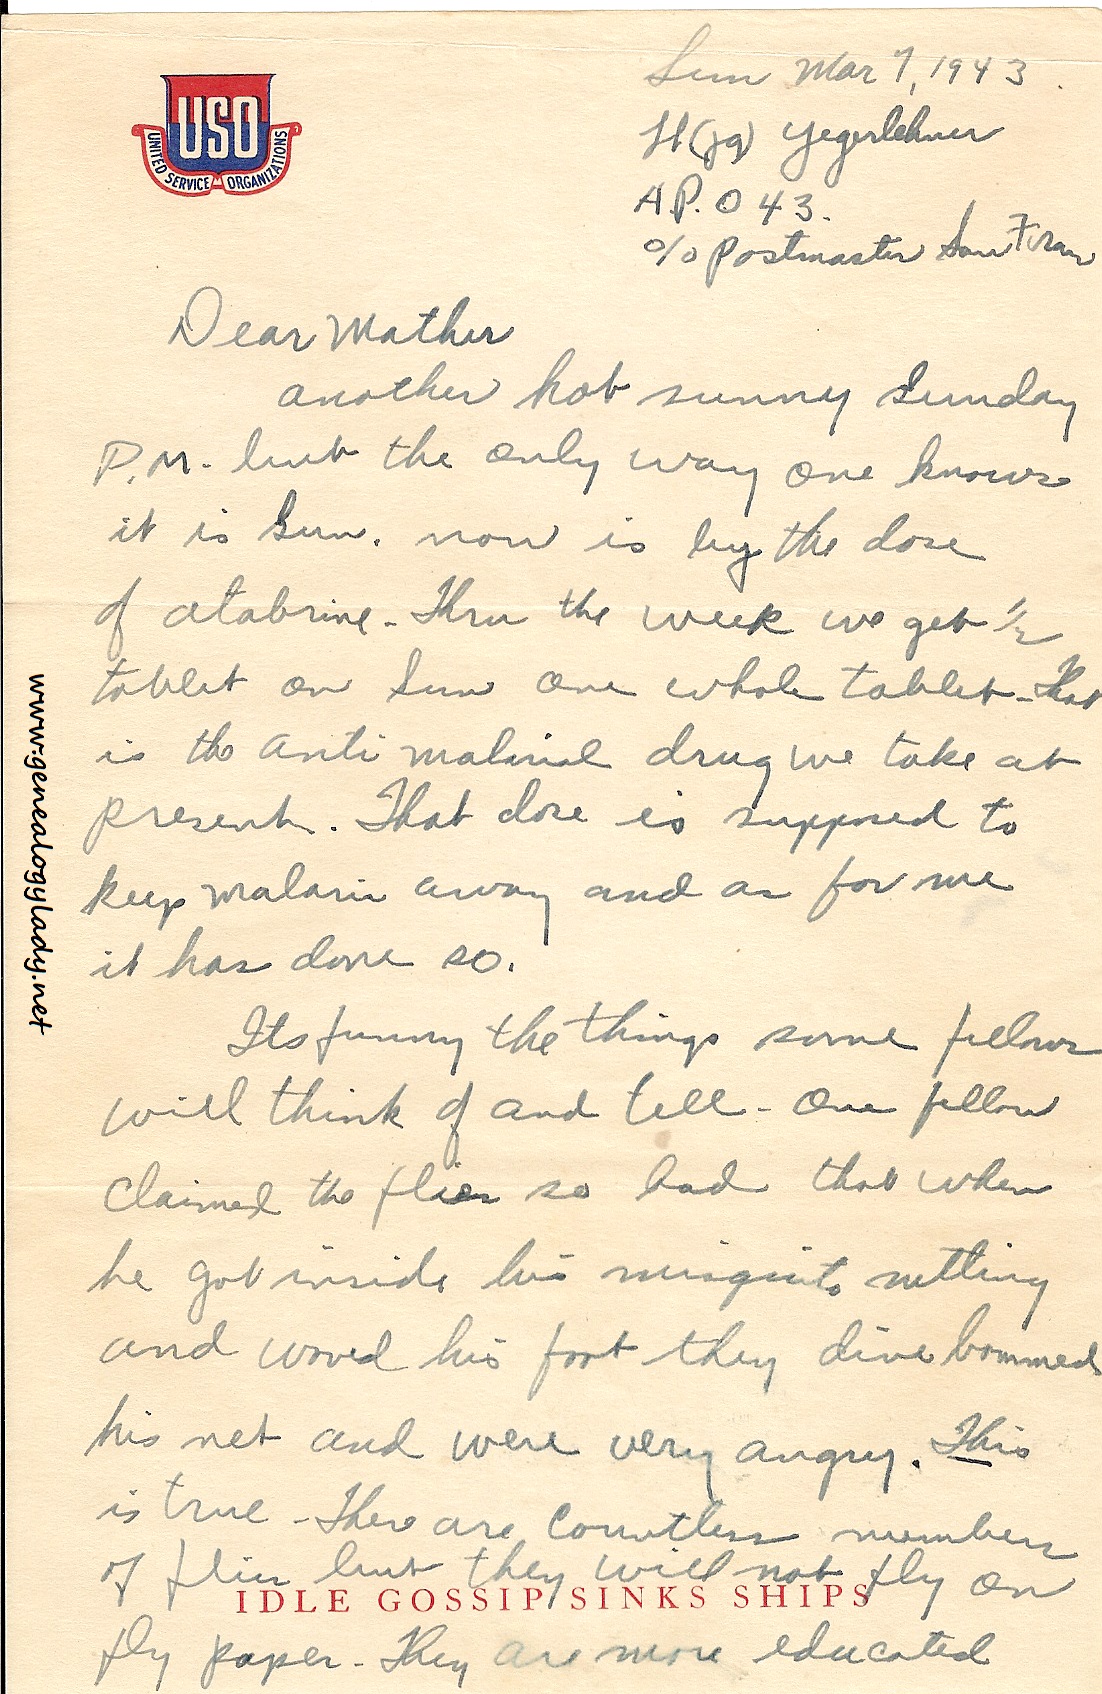 USO
UNITED SERVICE ORGANIZATIONS
Sun Mar 7, 1943.
Lt (jg) Yegerlehner
A.P.O 43.
c/o Postmaster San Fran
Dear Mother
another hot sunny Sunday
P.M. but the only way one knows
it is Sun. now is by the dose
of atabrine - Thru the week we get 1/2
tablet on Sun one whole tablet - That
is the anti malirial drug we take at
present. That dose is supposed to
keep malaria away and as for me
it has done so.
Its funny the things some fellows
will think of and tell - One fellow
claimed the flies so bad that when
he got inside his misquito netting
and waved his foot they dive bommed
his net and were very angry. This
is true - There are countless numbers
of flies but they will not fly on
IDLE GOSSIP SINKS SHIPS
fly paper - They are more educated
www.genealogylady.net